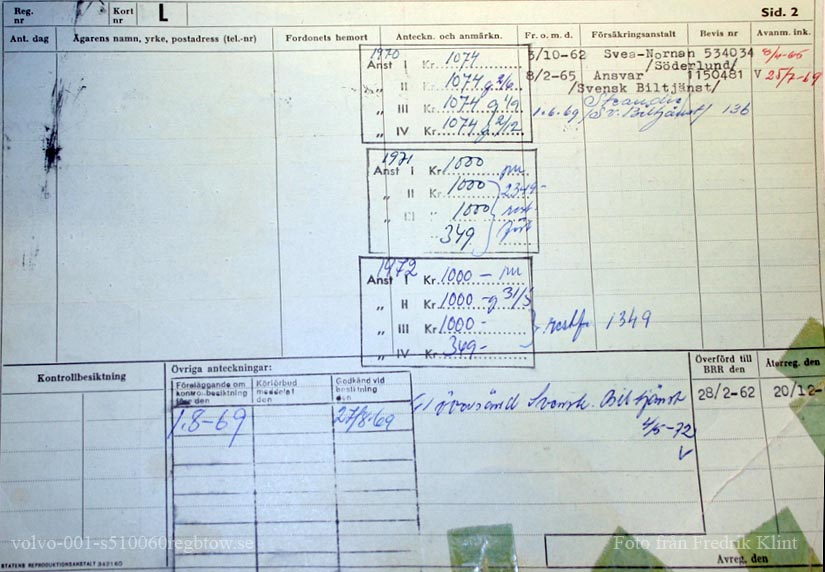 Reg. nr Kort nr L Sid. 2
Ant. dag Ägarens namn, yrke, postadress (tel.-nr) Fordonets hemort Anteckn. och anmärkn. Fr. o. m. d. Försäkringsanstalt Bevis nr Avanm. ink.
1970
Anst I Kr. 1074
„ II 1074 g 2/6
„ III 1074 g 1/9
„ IV 1074 g 2/12
3/10-62 Svea-Nornan 534034
/Söderlund/
8/2-65 Ansvar 1150481 V 25/7-69
/Svensk Biltjänst/
1.6.69 /Sv. Biltjänst/ 136
1971
Anst I Kr. 1000
„ II 1000 2349-
„ III „ 1000 rest
349
1972
Anst I Kr. 1000 -
„ II Kr. 1000 - g 31/5
„ III Kr. 1000 -
„ IV Kr. 349 -
1349
Kontrollbesiktning
Övriga anteckningar:
Föreläggande om kontrollbesiktning före den
Körförbud meddelat den
Godkänd vid besiktning den
1.8-69 27/8-69
översänd Svensk. Biltjänst
4/5-72
V
Överförd till BRR den
Återreg. den
28/2-62 20/12-
Avreg. den
STATENS REPRODUKTIONSANSTALT
volvo-001-s510060regbtow.se
Foto från Fredrik Klint